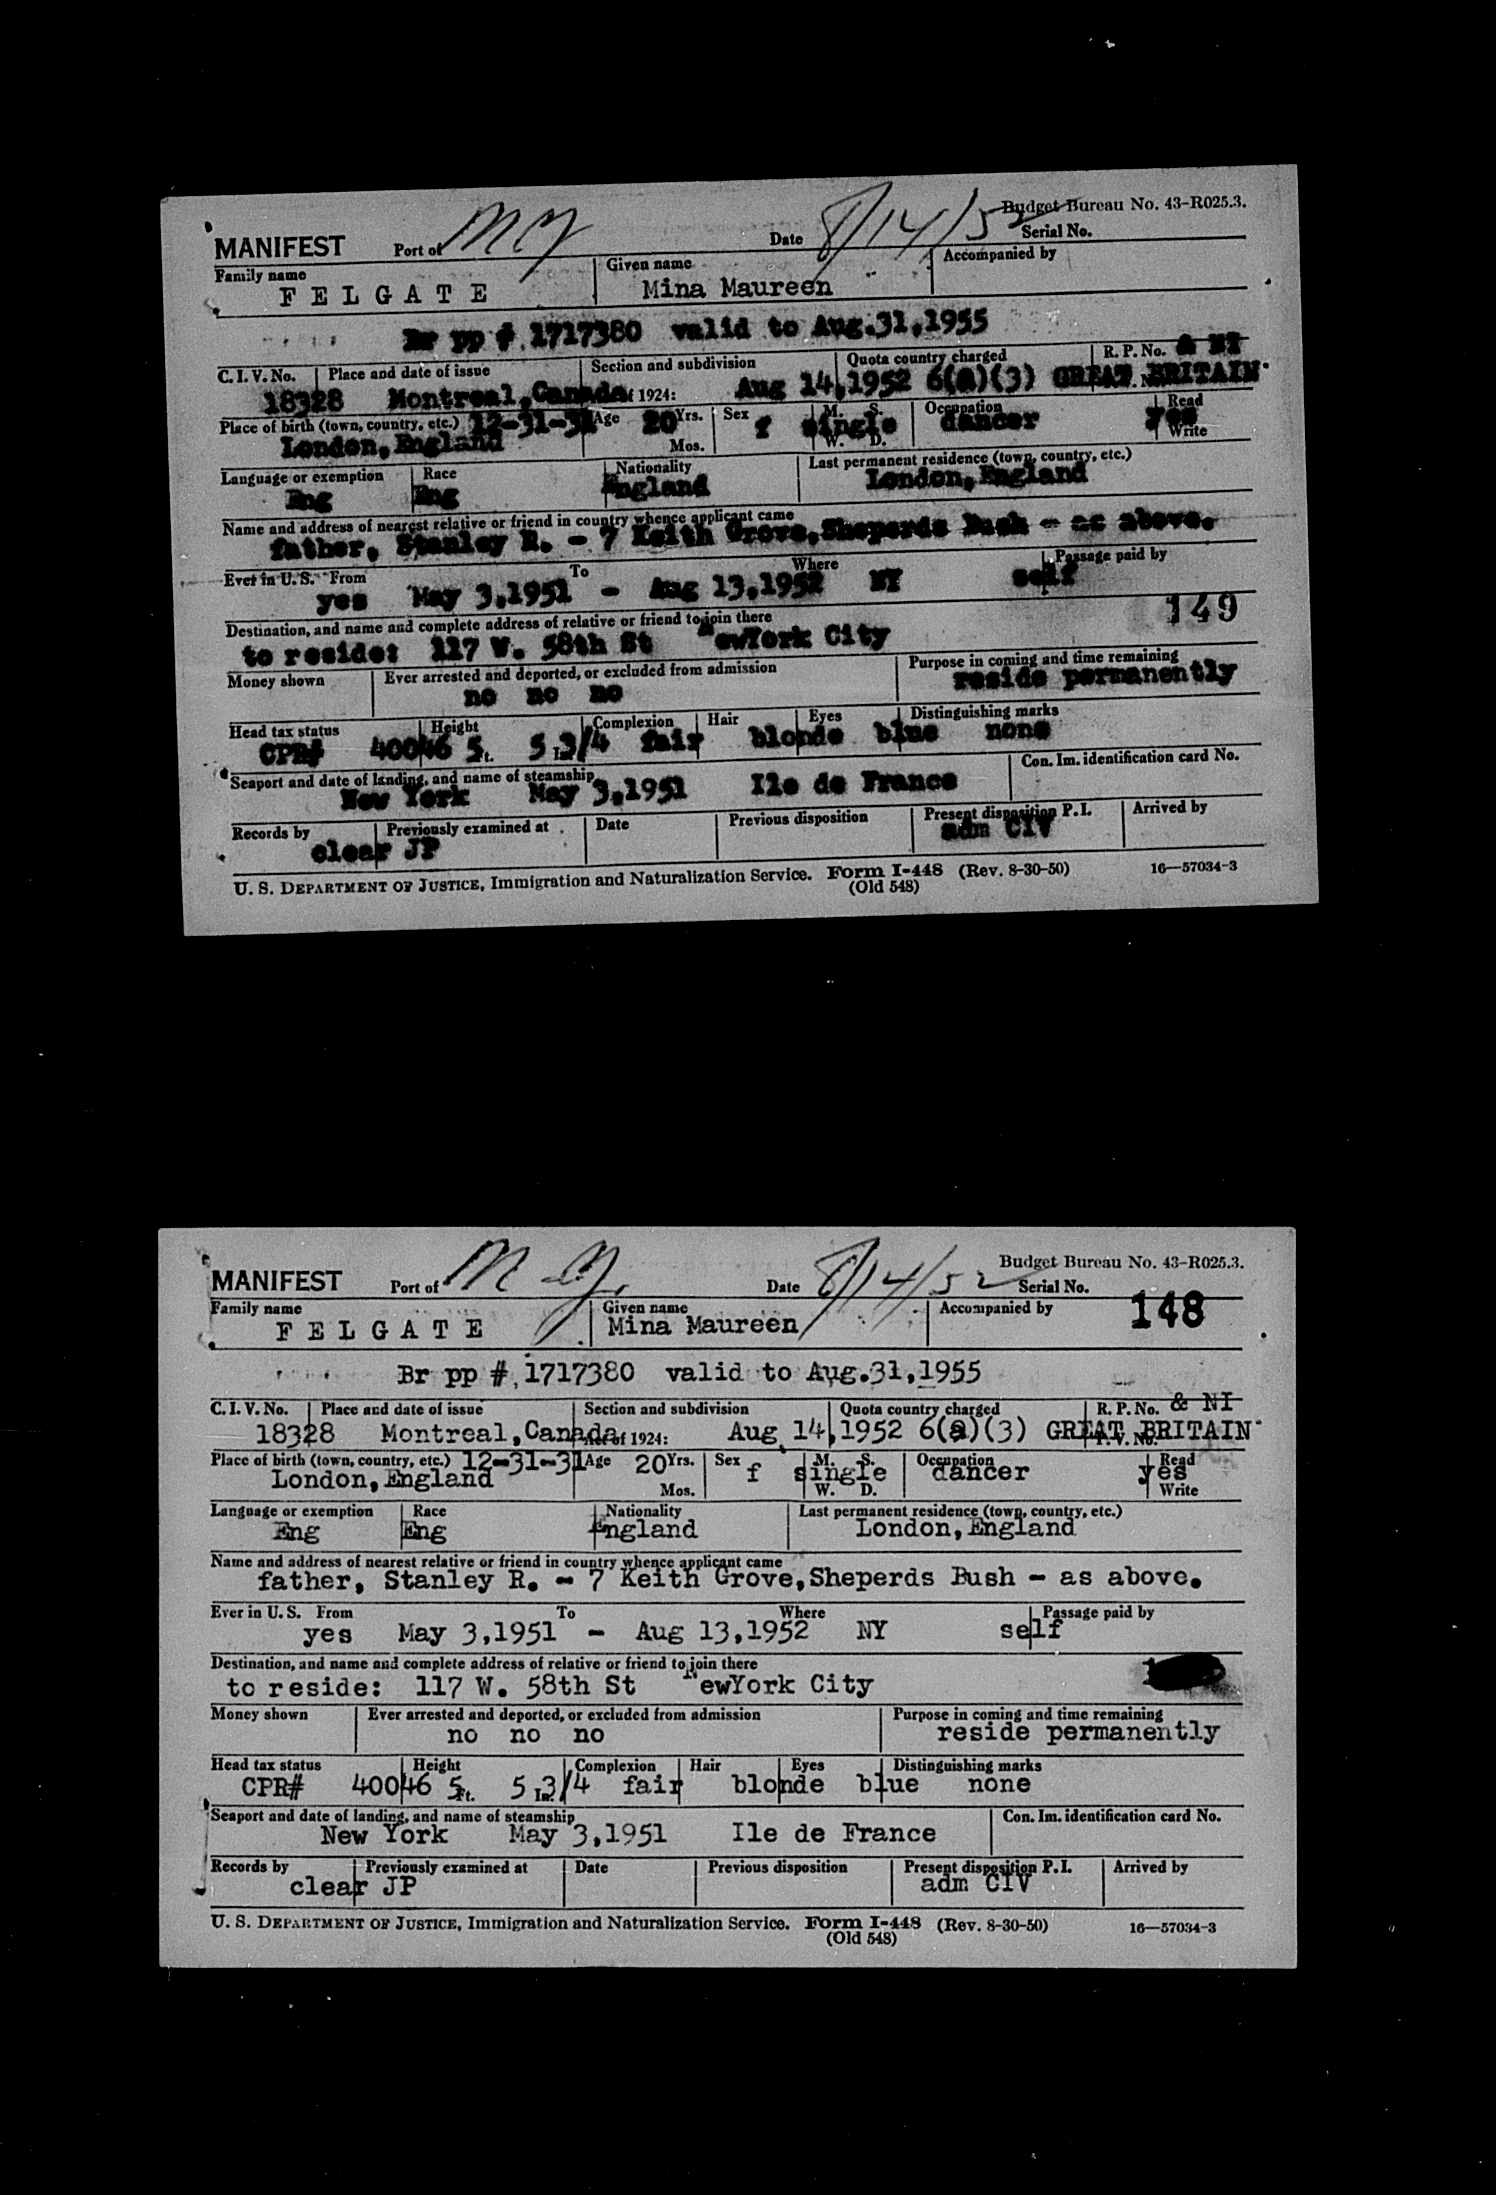 Budget Bureau No. 43-R025.3.
MANIFEST Port of N Y Date 8/14/52 Serial No.
Family name Given name Accompanied by
F E L G A T E Mina Maureen
Br pp # 1717380 valid to Aug.31,1955
C. I. V. No. Place and date of issue Section and subdivision Quota country charged R. P. No. & NI
18328 Montreal,Canada of 1924: Aug 14,1952 6(a)(3) GREAT BRITAIN
Place of birth (town, country, etc.) 12-31-31 Age 20 Yrs. Sex f M. S. single Occupation dancer Read yes
London,England Mos. W. D. Write
Language or exemption Race Nationality Last permanent residence (town, country, etc.)
Eng Eng England London,England
Name and address of nearest relative or friend in country whence applicant came
father, Stanley R. - 7 Keith Grove,Sheperds Bush - as above.
Ever in U. S. From To Where Passage paid by
yes May 3,1951 - Aug 13,1952 NY self
149
Destination, and name and complete address of relative or friend to join there
to reside: 117 W. 58th St NewYork City
Money shown Ever arrested and deported, or excluded from admission Purpose in coming and time remaining
no no no reside permanently
Head tax status Height Complexion Hair Eyes Distinguishing marks
CPR# 40046 5 Ft. 5 3/4 In. fair blonde blue none
Seaport and date of landing, and name of steamship Con. Im. identification card No.
New York May 3,1951 Ile de France
Records by Previously examined at Date Previous disposition Present disposition P. I. Arrived by
clear JP adm CIV
U. S. DEPARTMENT OF JUSTICE, Immigration and Naturalization Service. Form I-448 (Rev. 8-30-50) 16—57034-3
(Old 548)
Budget Bureau No. 43-R025.3.
MANIFEST Port of N Y. Date 8/14/52 Serial No.
Family name Given name Accompanied by 148
F E L G A T E Mina Maureen
Br pp # 1717380 valid to Aug.31,1955
C. I. V. No. Place and date of issue Section and subdivision Quota country charged R. P. No. & NI
18328 Montreal,Canada Act of 1924: Aug 14,1952 6(a)(3) GREAT BRITAIN P. V. No.
Place of birth (town, country, etc.) 12-31-31 Age 20 Yrs. Sex f M. S. single Occupation dancer Read yes
London,England Mos. W. D. Write
Language or exemption Race Nationality Last permanent residence (town, country, etc.)
Eng Eng England London,England
Name and address of nearest relative or friend in country whence applicant came
father, Stanley R. - 7 Keith Grove,Sheperds Bush - as above.
Ever in U. S. From To Where Passage paid by
yes May 3,1951 - Aug 13,1952 NY self
Destination, and name and complete address of relative or friend to join there
to reside: 117 W. 58th St NewYork City
Money shown Ever arrested and deported, or excluded from admission Purpose in coming and time remaining
no no no reside permanently
Head tax status Height Complexion Hair Eyes Distinguishing marks
CPR# 40046 5 Ft. 5 3/4 In. fair blonde blue none
Seaport and date of landing, and name of steamship Con. Im. identification card No.
New York May 3,1951 Ile de France
Records by Previously examined at Date Previous disposition Present disposition P. I. Arrived by
clear JP adm CIV
U. S. DEPARTMENT OF JUSTICE, Immigration and Naturalization Service. Form I-448 (Rev. 8-30-50) 16—57034-3
(Old 548)